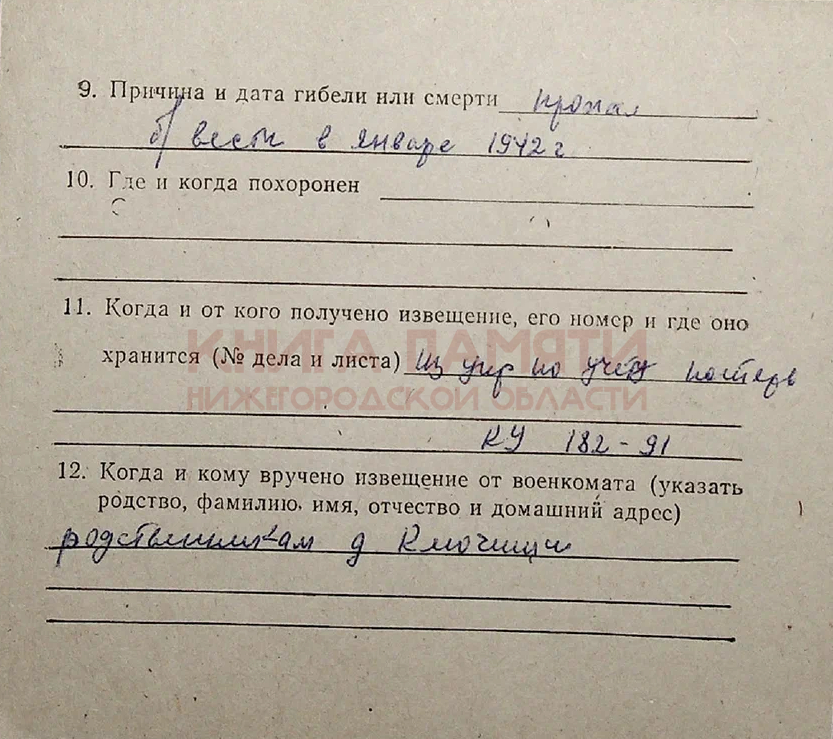 9. Причина и дата гибели или смерти пропал
б/ вести в январе 1942 г
10. Где и когда похоронен
11. Когда и от кого получено извещение, его номер и где оно
хранится (№ дела и листа) Из упр по учету потерь
КНИГА ПАМЯТИ
НИЖЕГОРОДСКОЙ ОБЛАСТИ
КУ 182-91
12. Когда и кому вручено извещение от военкомата (указать
родство, фамилию, имя, отчество и домашний адрес)
родственникам д Ключищи